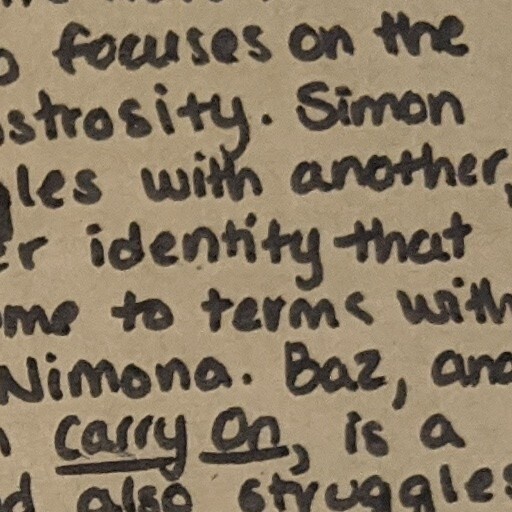 focuses on the
strosity. Simon
les with another,
er identity that
me to terms with
Nimona. Baz, and
Carry On, is a
d also struggles